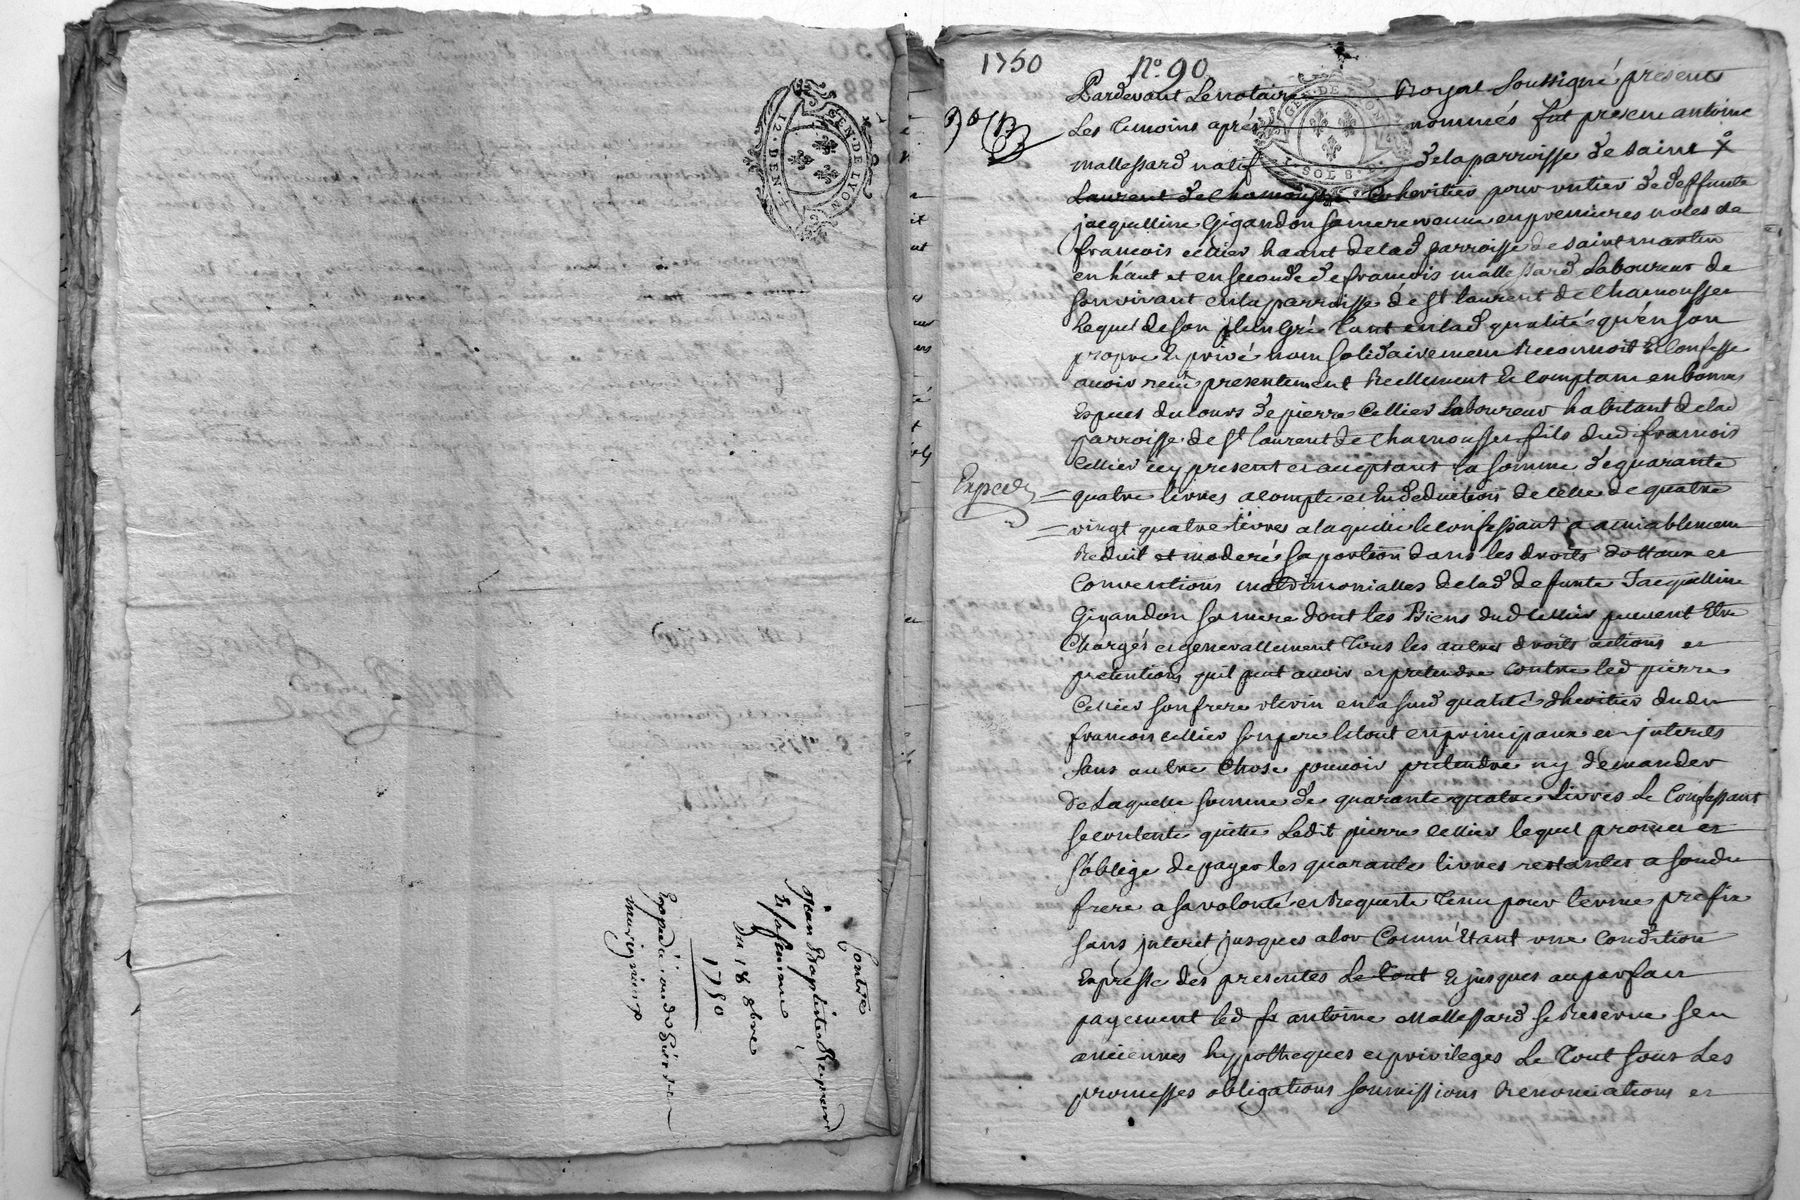 GEN·DE·LYON
12·DEN·
Contre
jean Baptiste Reynard
Et sa femme
Du 18 8bre
1750
Expedié
1750
No. 90
GEN·DE·LYON
SOLS
Expedié
Pardevant Le notaire Royal soussigné presents
Les temoins apres nommés fut present antoine
mallessard natif de la parroisse de saint
Laurent de Chamousset Coheritier pour un tier de deffunte
jacquelline Gigandon sa mere veuve en premieres noces de
francois cellier hant de lad parroisse de saint martin
en haut et en seconde de francois mallessard Laboureur de
son vivant en la parroisse de st laurent de Chamousset
Lequel de son plein Gré tant en lad qualité qu'en son
propre et privé nom solidairement Reconnoit Et Confesse
avoir receu presentement Reellement Et Comptant en bonnes
Especes du cours de pierre Cellier Laboureur habitant de lad
parroisse de st laurent de Chamousset fils dud francois
Cellier icy present et acceptant la somme de quarante
quatre livres a compte et en deduction de celle de quatre
vingt quatre livres a laquelle le confessant a amiablement
Reduit et moderé sa portion dans les droits dottaux et
Conventions matrimonialles de lad defunte Jacquelline
Gigandon sa mere dont les Biens dud Cellier peuvent Etre
Chargés et generallement tous les autres droits actions et
pretentions qu'il peut avoir et pretendre contre led pierre
Cellier son frere uterin en la sud qualité d'heritier dudit
francois cellier son pere le tout en principaux et interets
sans autre Chose pouvoir pretendre ny demander
de Laquelle somme de quarante quatre Livres Le Confessant
se contente quitte Ledit pierre Cellier lequel promet et
s'oblige de payer les quarante livres restantes a son du
frere a sa volonté et Requeste tenu pour terme prefix
sans interet jusques alor Comm'Etant une Condition
Expresse des presentes Le tout Et jusques au parfait
payement led sr antoine Mallessard se Reserve ses
anciennes hyppotheques et privileges Le tout sous Les
promesses obligations soumissions Renonciations et